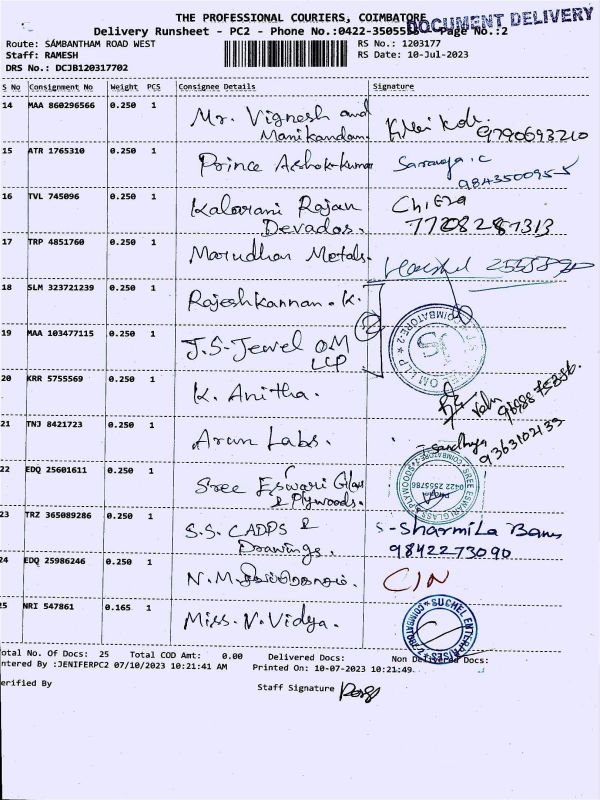 THE PROFESSIONAL COURIERS, COIMBATORE
DOCUMENT DELIVERY
Delivery Runsheet - PC2 - Phone No.:0422-3505 Page No.:2
Route: SAMBANTHAM ROAD WEST
RS No.: 1203177
Staff: RAMESH
RS Date: 10-Jul-2023
DRS No.: DCJB120317702
S No Consignment No Weight PCS Consignee Details Signature
14 MAA 860296566 0.250 1 Mr. Vignesh and
Manikandan. 9790693210
15 ATR 1765310 0.250 1 Prince Ashok kumar Saranya.c
9843500955
16 TVL 745096 0.250 1 Kalarani Rajan
Devados. 7708287313
17 TRP 4851760 0.250 1 Marudhar Metals.
18 SLM 323721239 0.250 1 Rajeshkannan.K.
19 MAA 103477115 0.250 1 J.S-Jewel OM
LLP
COIMBATORE-2
OM LLP
20 KRR 5755569 0.250 1 K. Anitha.
21 TNJ 8421723 0.250 1 Arun Labs. Sandhya
9363102133
22 EDQ 25601611 0.250 1 Sree Eswari Glass
& Plywoods.
SREE ESWARI GLASS & PLYWOODS
0422 2555786
COIMBATORE-2
23 TRZ 365089286 0.250 1 S.S. CADPS &
Drawings. S-Sharmila Banu
9842273090
24 EDQ 25986246 0.250 1 N.M. CIN
25 NRI 547861 0.165 1 Miss.N.Vidya.
SUCHEL ENTERPRISES
COIMBATORE-2
otal No. Of Docs: 25 Total COD Amt: 0.00 Delivered Docs: Non Delivered Docs:
ntered By :JENIFERPC2 07/10/2023 10:21:41 AM Printed On: 10-07-2023 10:21:49
erified By
Staff Signature